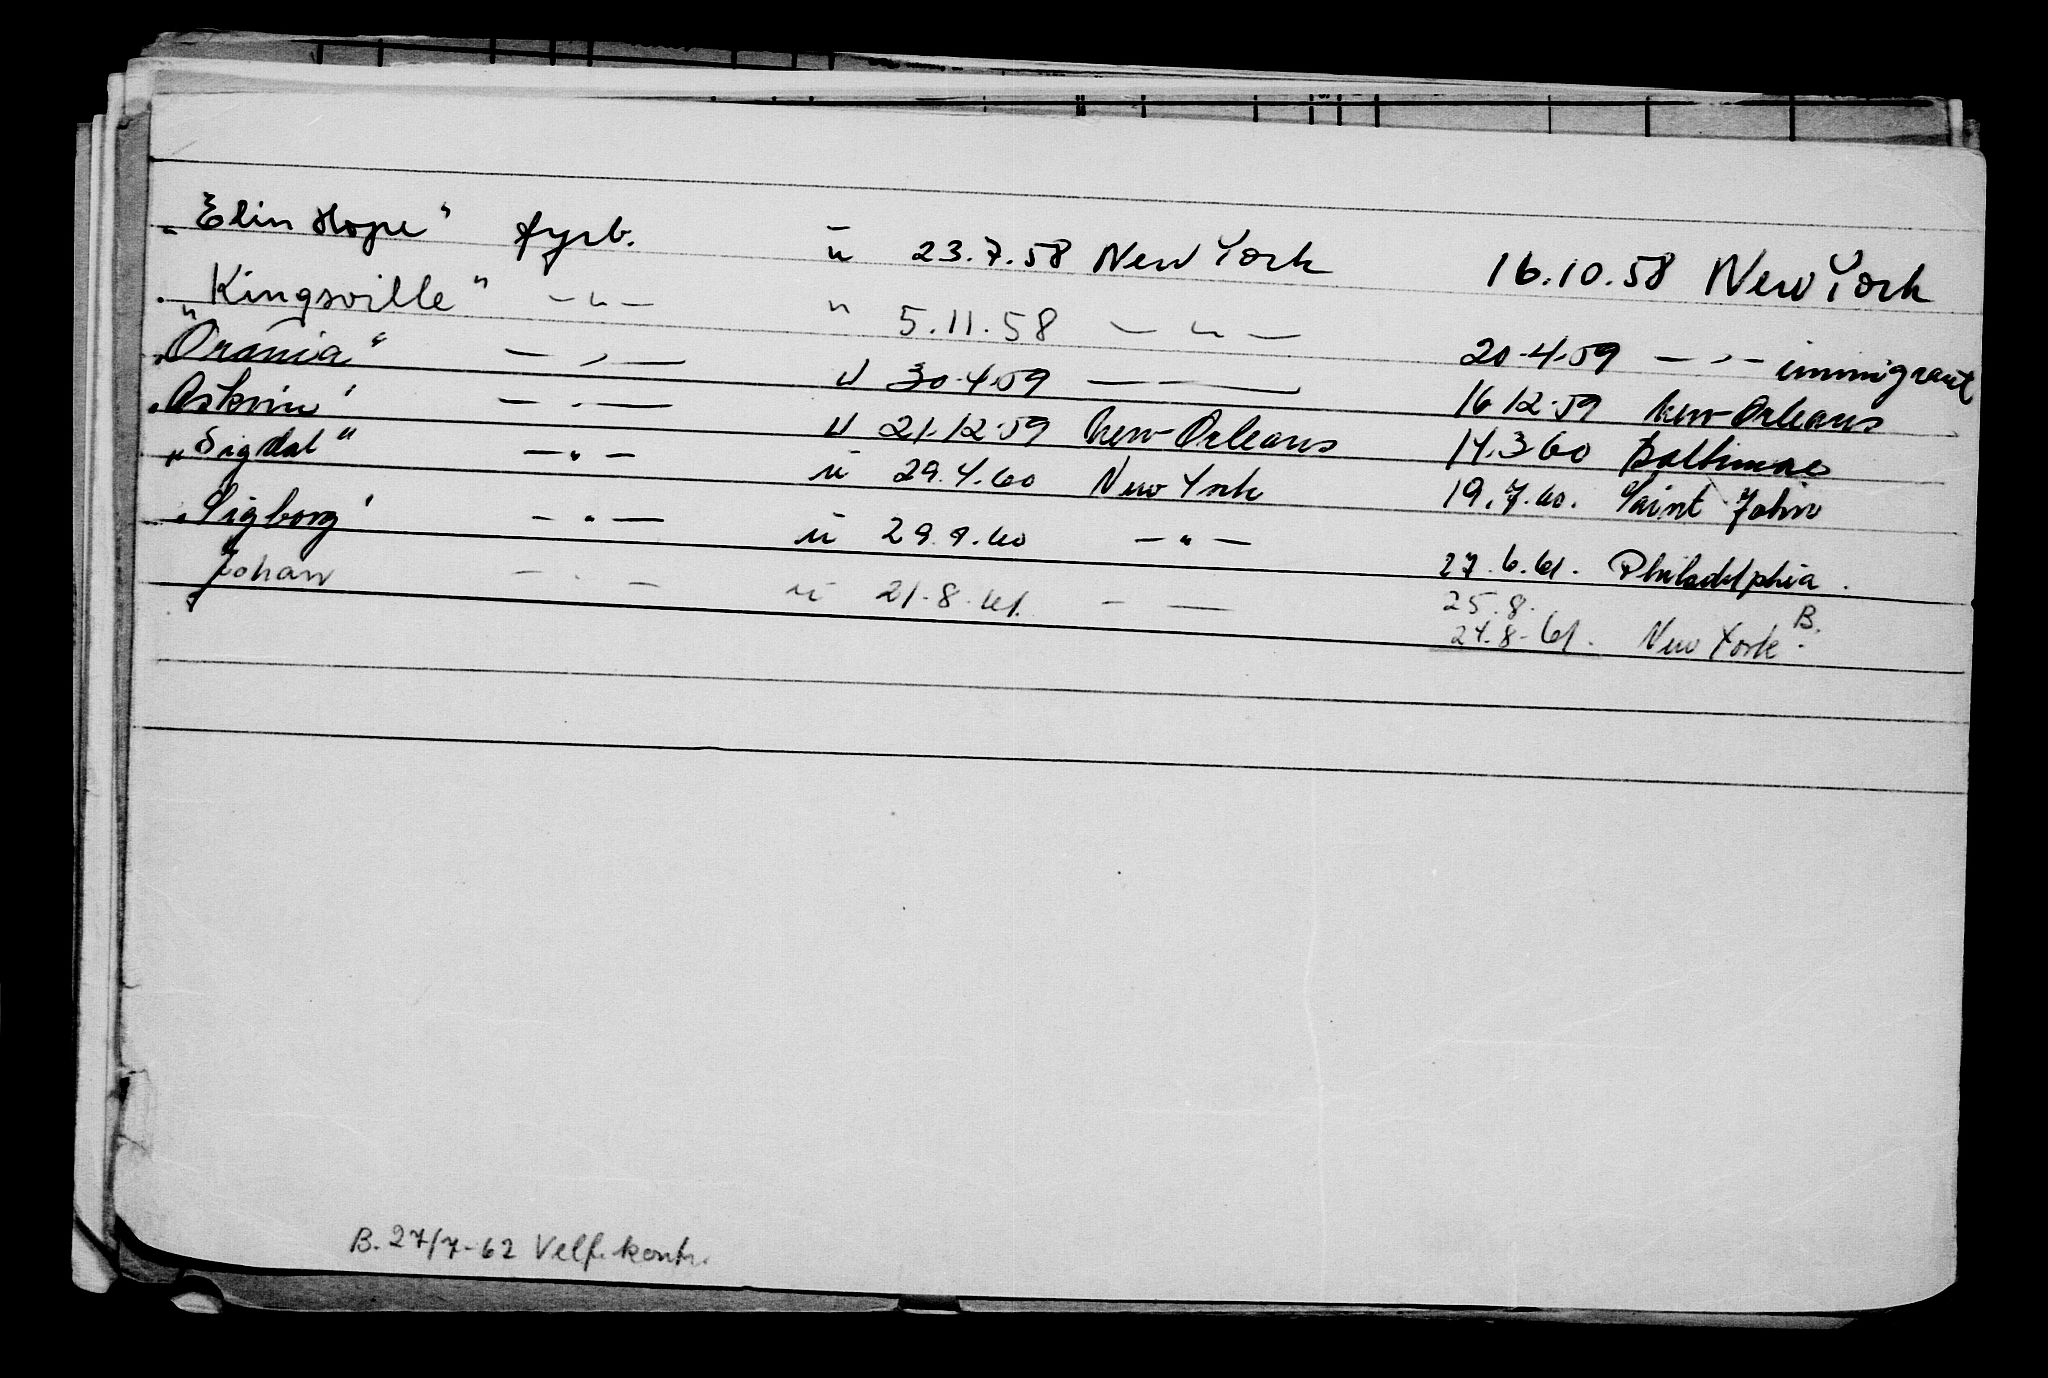 "Elin Hope" fyrb. ü 23.7.58 New York 16.10.58 New York
"Kingsville" —"— " 5.11.58 —"— 20.4.59 —"— immigrant
"Orania" —"— u 30.4.59 — — 16.12.59 New-Orleans
"Askvin" —"— u 21.12.59 New-Orleans 14.3.60 Baltimore
"Sigdal" —"— ü 29.4.60 New York 19.7.60. Saint John
"Sigborg" —"— ü 29.9.60 —"— 27.6.61. Philadelphia.
Johan —"— ü 21.8.61. — — 25.8.
24.8-61. New York. B.
B. 27/7-62 Velf.kontr.